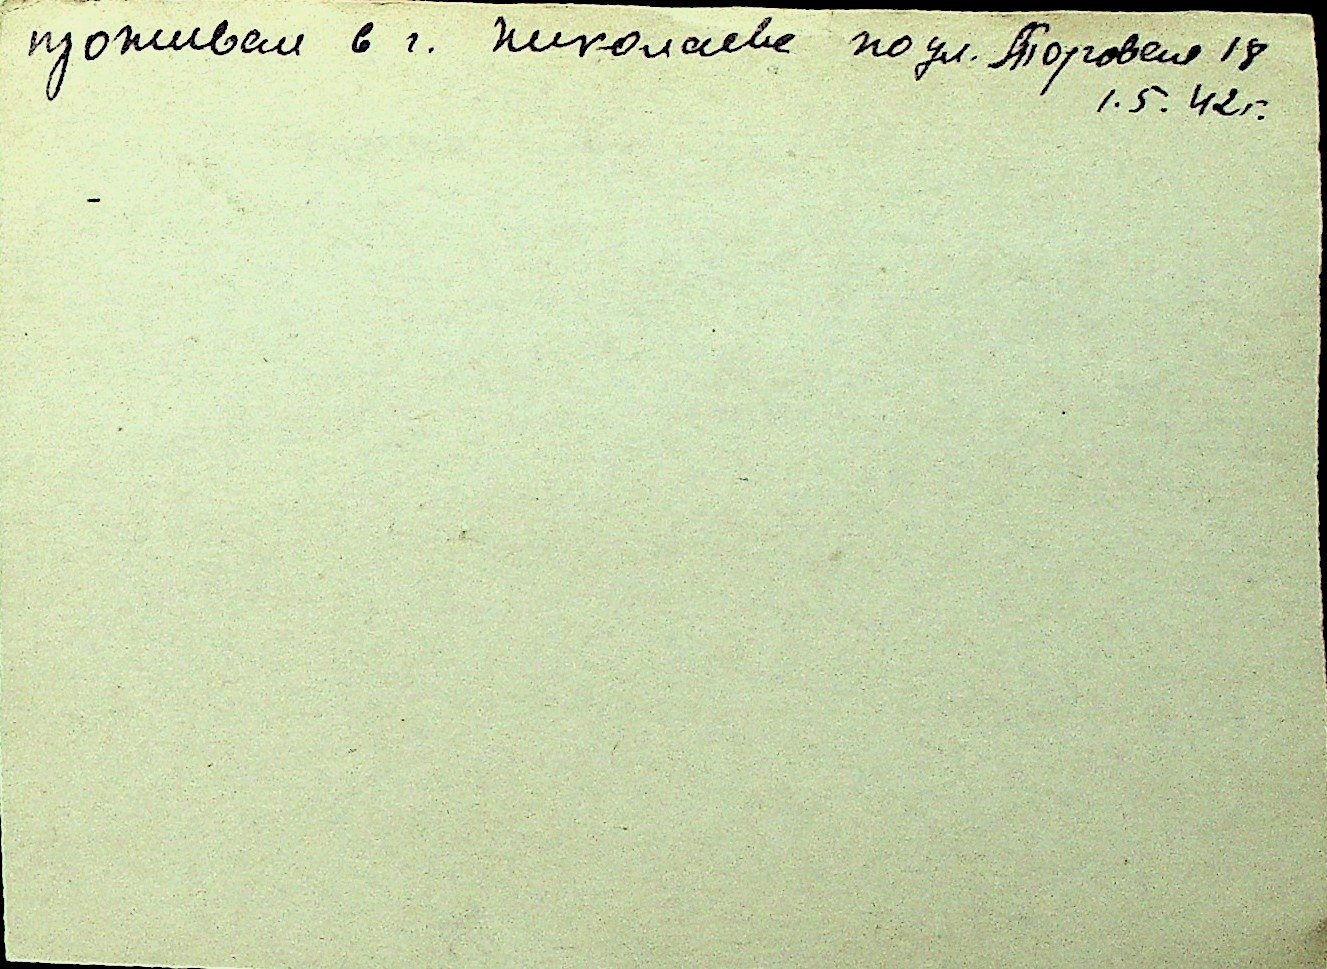 проживал в г. Николаеве по ул. Торговая 18
1.5.42г.